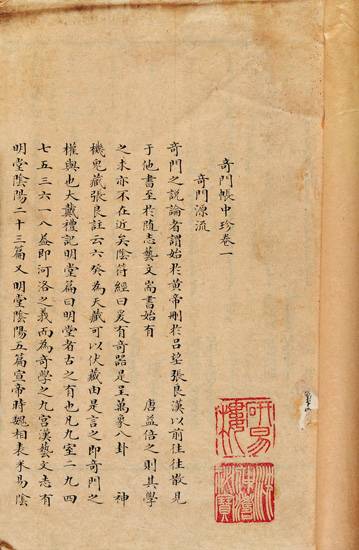 奇門帳中珍卷一
奇門源流
奇門之說論者謂始於黃帝刪於呂望張良漢以前往往散見
于他書至於隋志藝文耑書始有 唐益倍之則其學
之來亦不在近矣陰符經曰爰有奇器是呈萬象八卦 神
機鬼藏張良註云六癸為天藏可以伏藏由是言之即奇門之
權輿也大戴禮記明堂篇曰明堂者古之有也凡九室二九四
七五三六一八蓋即河洛之義而為奇學之九宮漢藝文志有
明堂陰陽二十三篇又明堂陰陽五篇宣帝時魏相表采易陰
研易樓